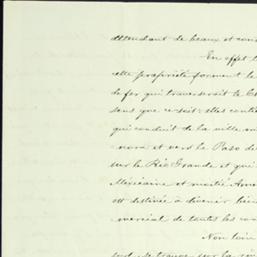 attendant de beaux et cons
En effet l
cette propriété forment le
de fer qui traverserait le C
sens que ce soit: elles conti
qui conduit de la ville
nora et vers le Paso de
sur le Rio Grande et qui
Mexicaine et moitié Amer
est destinée à devenir bien
mercial de toutes les con
Non loin
sud, se trouve sur la